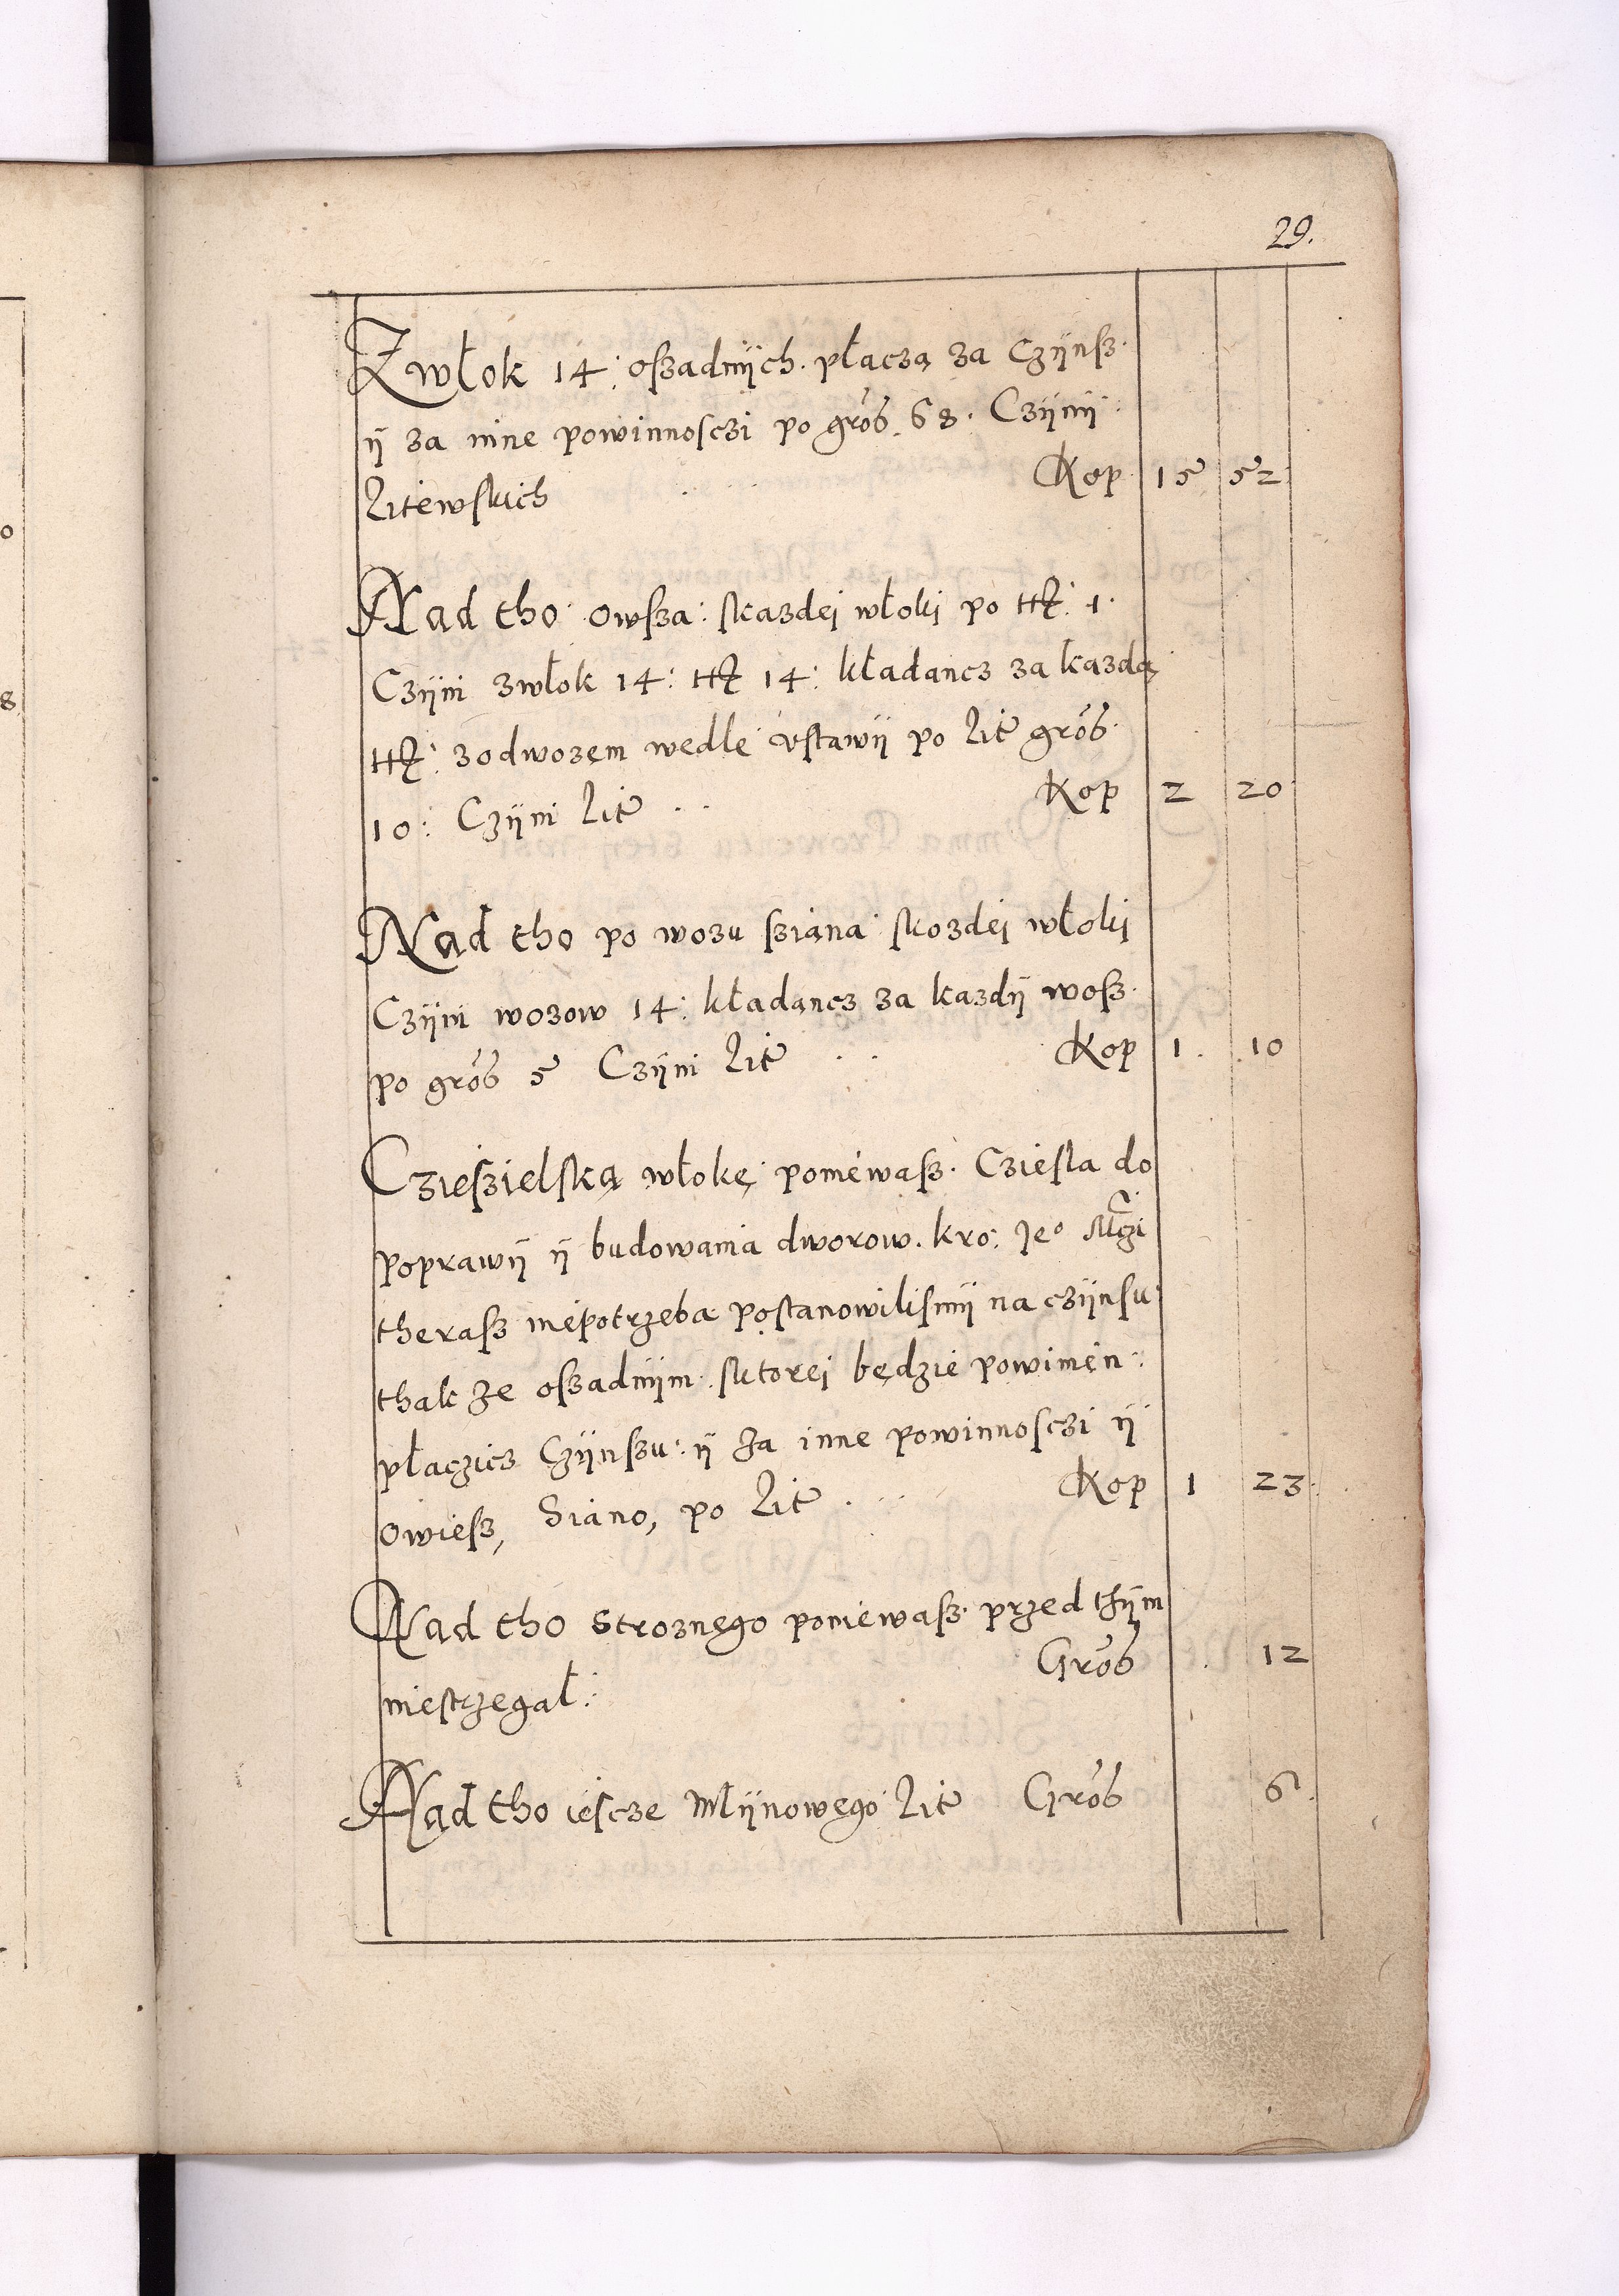 29.
Z włok 14: oszadnijch. płaczą za Czijnsz.
ij za inne powinnosczi po grosz. 68. Czijnij
Litewskich Kop 15 52
Nad tho owsza: skazdei włoki po ttR: 1.
Czijni zwłok 14: ttR 14: kładancz za kazdą
ttR: zodwozem wedle vstawij po Lit grosz.
10: Czijni Lit Kop 2 20
Nad tho po wozu sziana skozdei włoki
Czijni wozow 14: kładancz za kazdij wosz.
po grosz 5 Czijni Lit Kop 1. 10
Czieszielską włokę poniewasz. Cziesla do
poprawij ij budowania dworow. kro: Je°
therasz niepotrzeba postanowilismij na czijnsu
thak ze oszadnijm. ktorei będzie powinien:
płaczicz Czijnszu: ij za inne powinnosczi ij
owiesz, Siano, po Lit Kop 1 23
Nad tho stroznego poniewasz. przed thijm
niestrzegał: Grosz 12
Nad tho iescze Młijnowego Lit Grosz 6